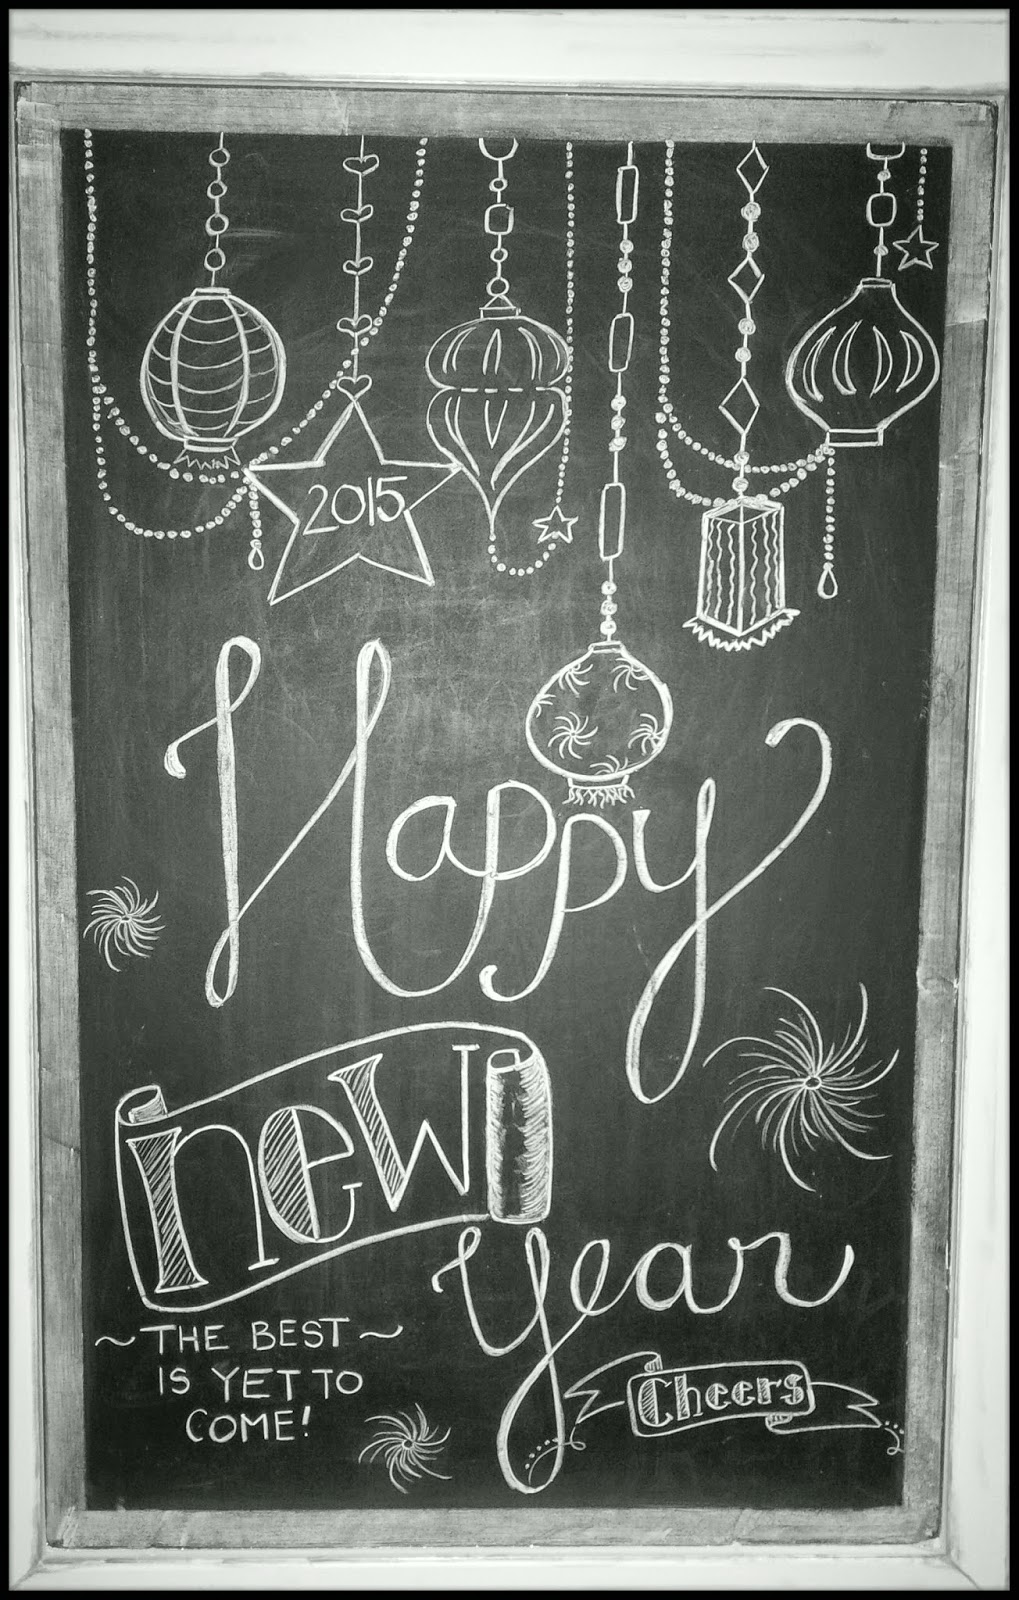 2015
Happy
new
year
~THE BEST~
IS YET TO
COME!
Cheers